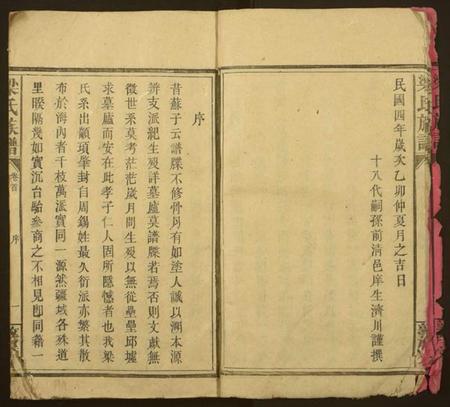 梁氏族譜
民國四年歲次乙卯仲夏月之吉日
十八代嗣孫前清邑庠生濟川謹撰
序
昔蘇子云譜牒不修骨肉有如塗人誠以溯本源
辨支派紀生歿詳墓廬莫譜牒若焉否則文獻無
徵世系莫考茫茫歲月問生歿以無從壘壘邱墟
求墓廬而安在此孝子仁人固所隱憾者也我梁
氏系出顓頊肇封自周錫姓最久衍派亦繁其散
布於海內者千枝萬派實同一源然疆域各殊道
里睽隔幾如實沉台駘參商之不相見即同籍一
梁氏族譜
卷首
序
一